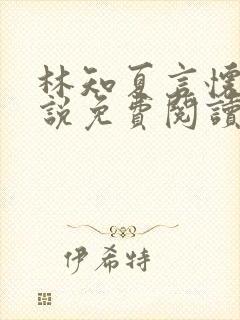 林知夏言懷
說免費閱讀
伊希特